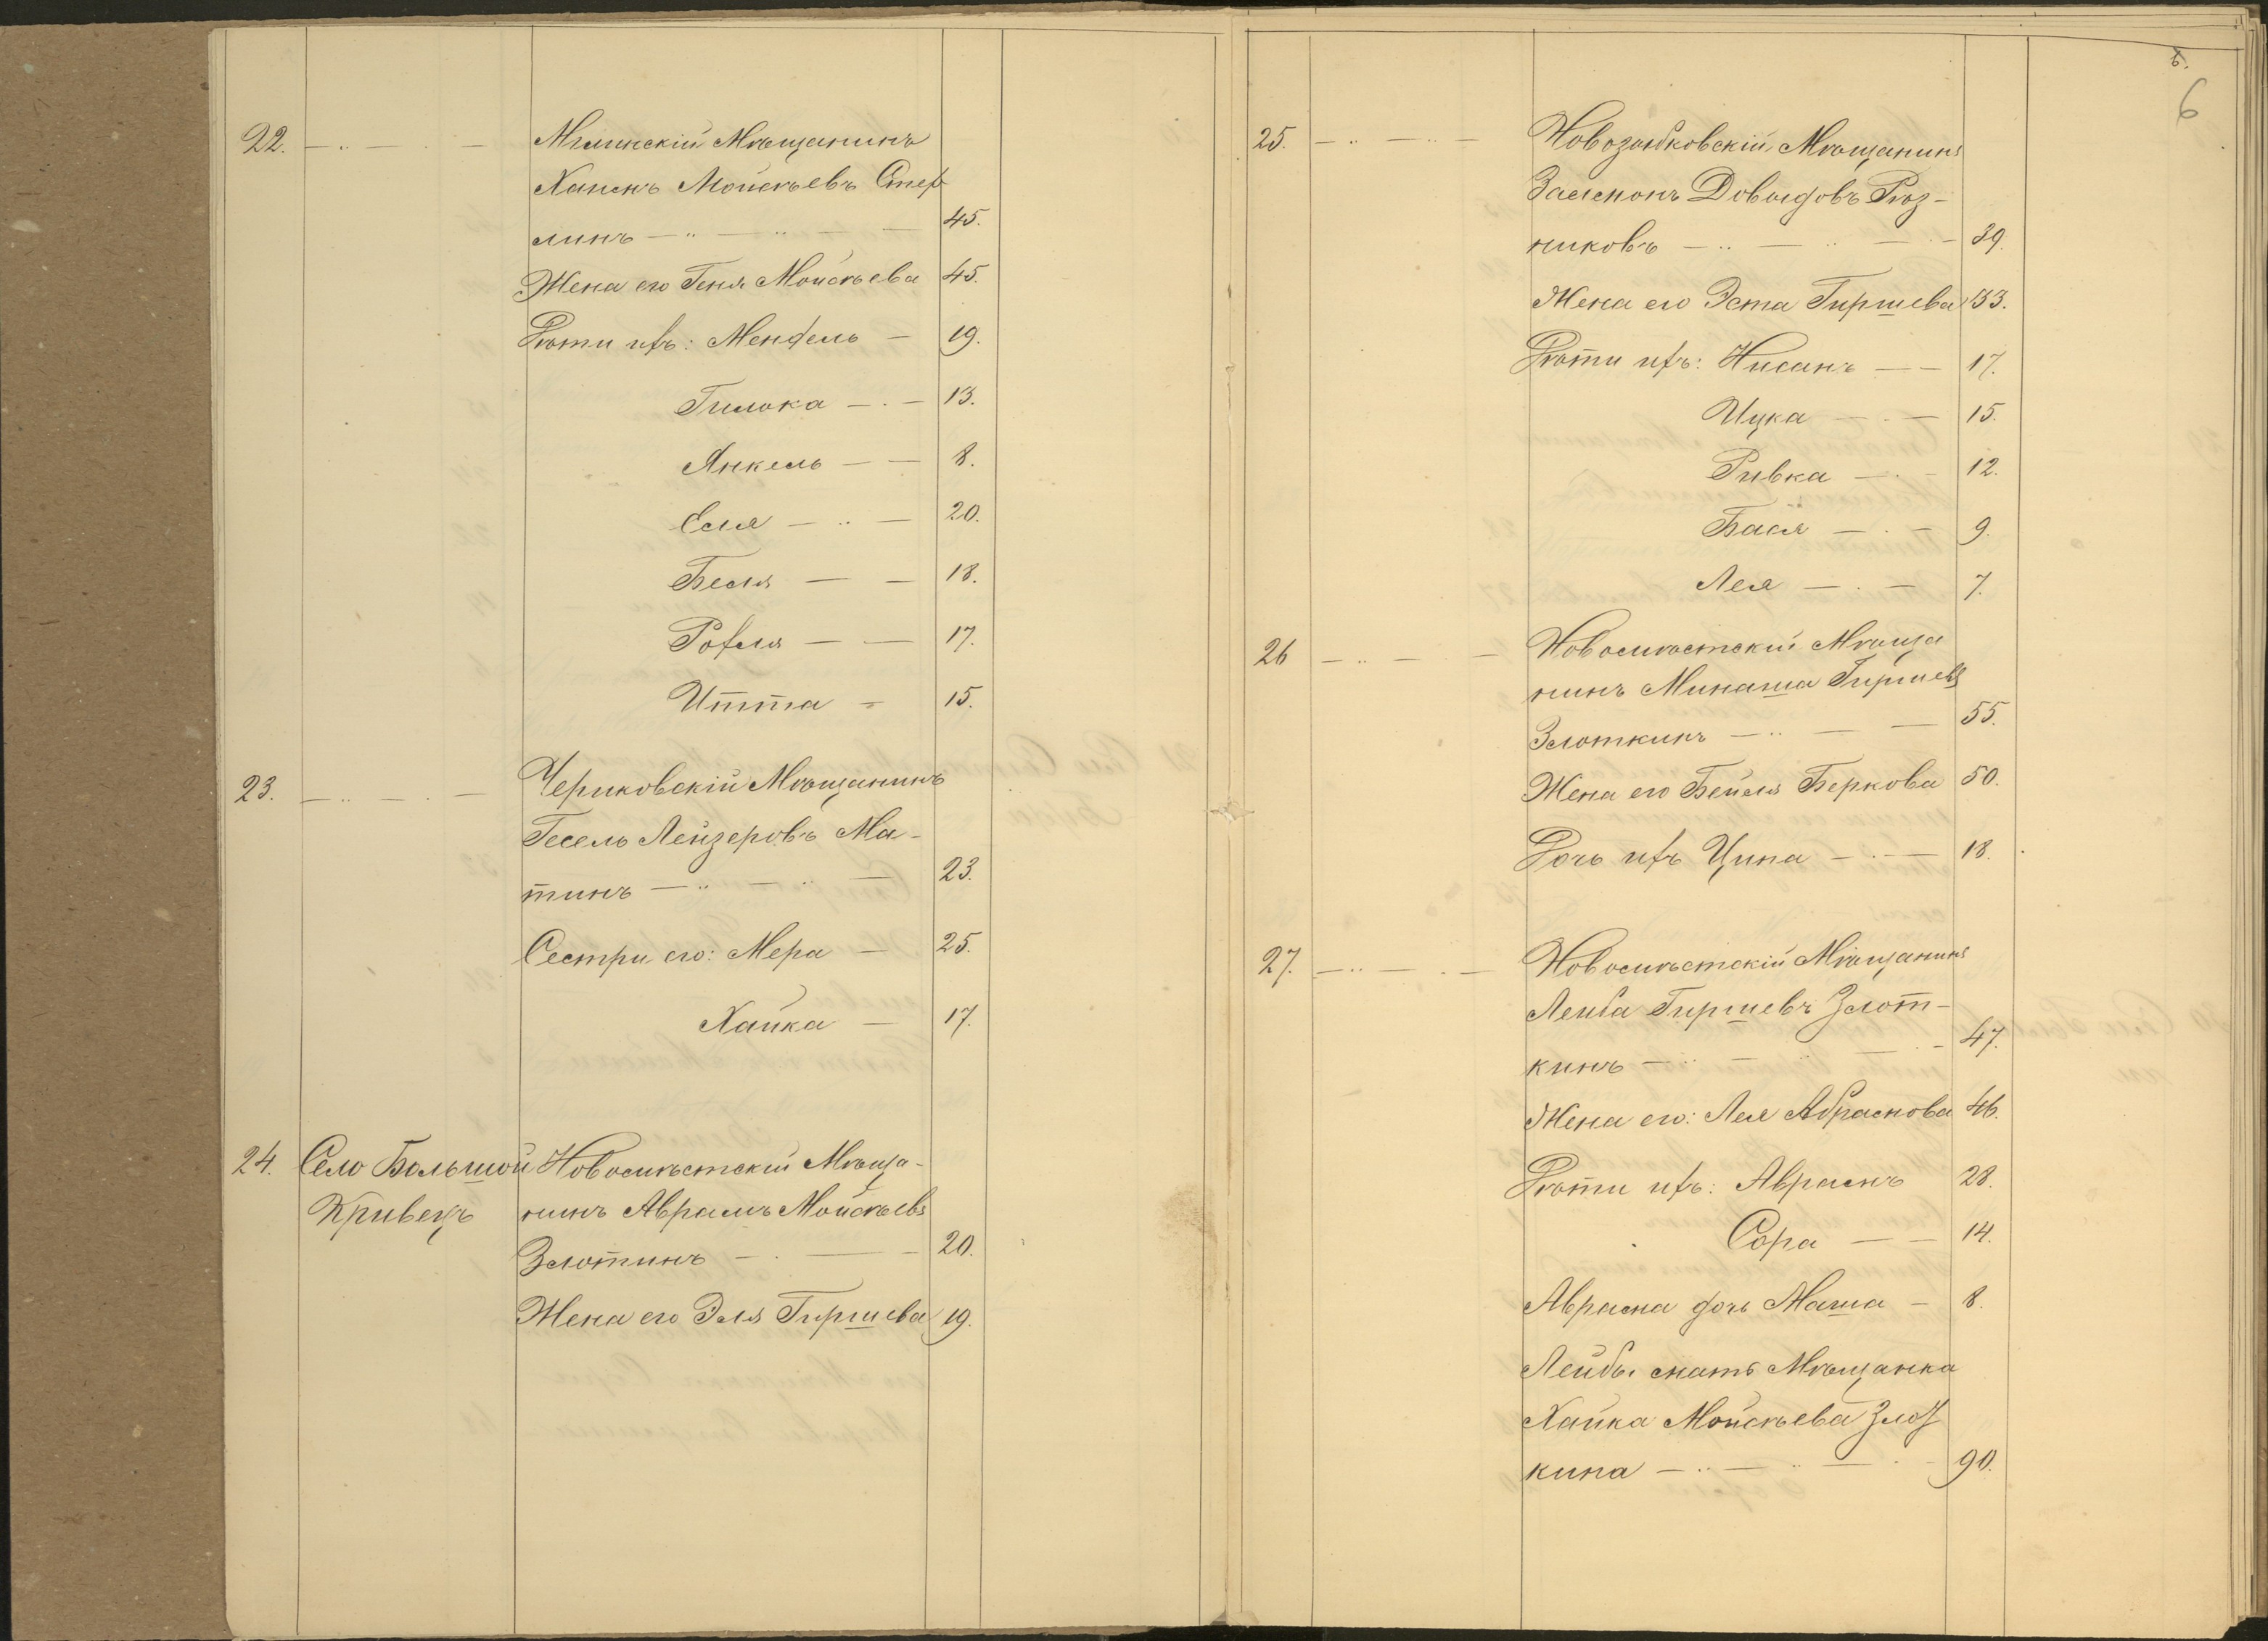 22. — " — " — Мглинскій Мѣщанинъ
Хаимъ Мойсѣевъ Стер
линъ — " — " — — 45.
Жена его Геня Мойсѣева 45.
Дѣти ихъ: Мендель — 19.
Гилька — . — 13.
Янкель — — 8.
Еля — " — 20.
Беля — — 18.
Рохля — — 17.
Итта — 15.
23. — " — . — Чериковскій Мѣщанинъ
Гесель Лейзеровъ Ма-
тинъ — " — " — 23.
Сестри его: Мера — 25.
Хайка — 17.
24. Село Большой Новомѣстскій Мѣща-
Кривецъ нинъ Аврамъ Мойсѣевъ
Злотинъ — . — — 20.
Жена его Эля Гиршева 19.
5.
6
25. — " — " — Новозыбковскій Мѣщанинъ
Залмонъ Довыдовъ Рѣз-
никовъ — " — " — . — 39.
Жена его Эста Гиршева 33.
Дѣти ихъ: Нисанъ — — 17.
Ицка — . — 15.
Ривка — . — 12.
Бася — . — 9.
Лея — . — 7.
26 — " — — Новомѣстскій Мѣща
нинъ Минаша Гиршевъ
Злоткинъ — " — — 55.
Жена его Бейля Беркова 50.
Дочь ихъ Ципа — . — 18.
27. — " — . — Новомѣстскій Мѣщанинъ
Лейба Гиршевъ Злот-
кинъ — " — " — . — 47.
Жена его: Лея Абрамова 46.
Дѣти ихъ: Аврамъ 28.
Сора — — 14.
Аврама дочь Маша — 8.
Лейбы мать Мѣщанка
Хайка Мойсѣева Злот
кина — " — " — . — 90.